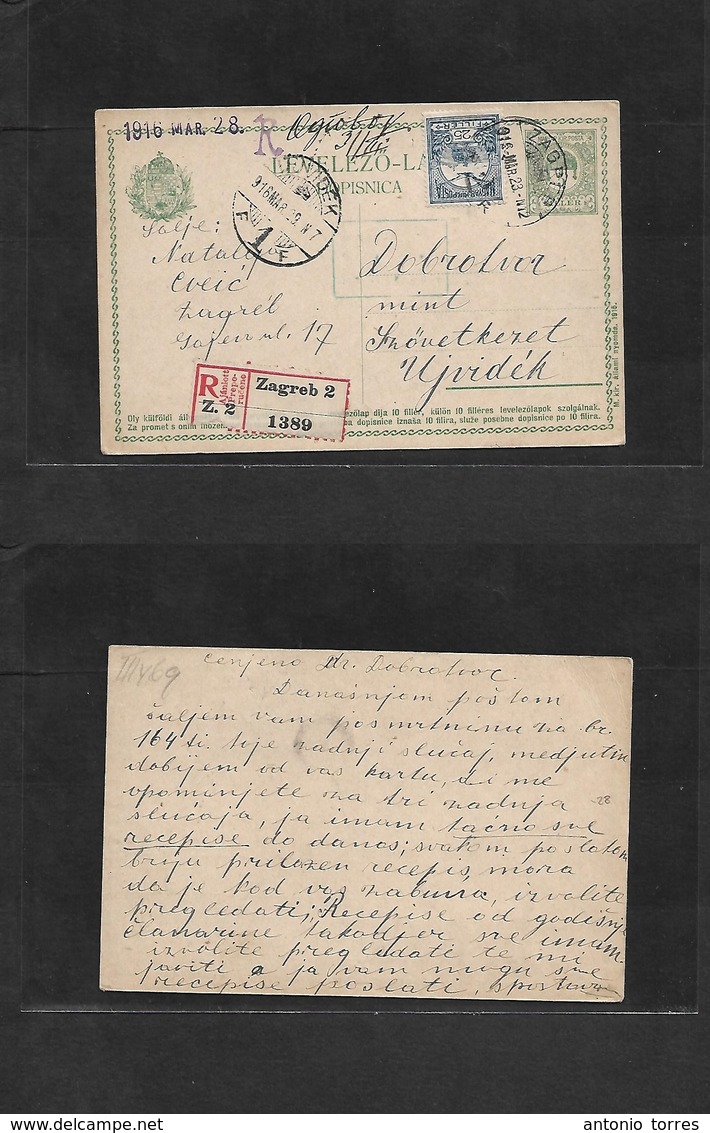 1916 MAR. 28.
R.
LEVELEZŐ-LA
DOPISNICA
25
FILLÉR
ZAGREB
916 MAR. 28. N12
VIDÉK
916 MAR. 29. N7
F 1 F
Šalje:
Natalij
Cveić
Zagreb
Gajeva ul. 17
Dobrotvor
mint
Szövetkezet
Ujvidék
R
Ajánlott
Prepo-
ručeno
Z. 2
Zagreb 2
1389
Oly külföldi áll
velezőlap dija 10 fillér, külön 10 filléres levelezőlapok szolgálnak.
Za promet s onim inozem
dopisnice iznaša 10 filira, služe posebne dopisnice po 10 filira.
M. kir. állami nyomda. 1916.
Cenjeno Dr. Dobrotvor.
Današnjom poštom
šaljem vam posmrtninu za br.
164 ti. to je zadnji slučaj, medjutim
dobijem od vas kartu, di me
opominjete za tri zadnja
slučaja, ja imam tačno sve
recepise do danas; svakom poslatom
broju priložen recepis, mora
da je kod vas zabuna, izvolite
pregledati; Recepise od godišnje
članarine takodjer sve imam
izvolite pregledati te mi
javiti a ja vam mogu sve
recepise poslati, s poštova
28
antonio torres